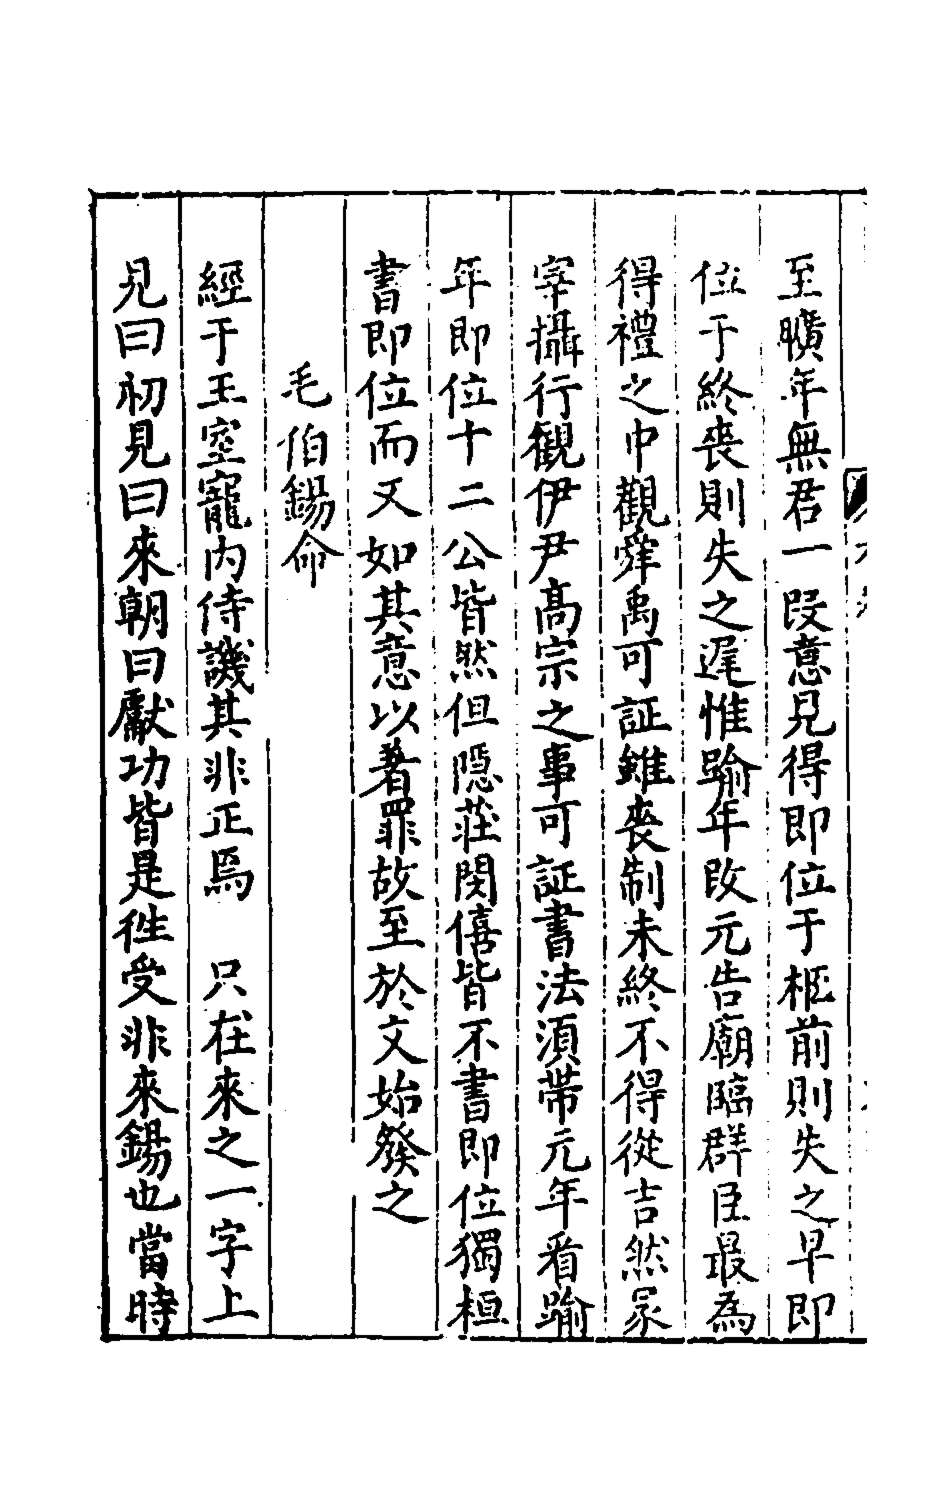 至曠年無君一段意見得即位于柩前則失之早即
位于終喪則失之遲惟踰年改元告廟臨群臣最為
得禮之中觀舜禹可証雖喪制未終不得從吉然冢
宰攝行觀伊尹高宗之事可証書法須帶元年看踰
年即位十二公皆然但隱莊閔僖皆不書即位獨桓
書即位而又如其意以著罪故至於文始發之
毛伯錫命
經于王室寵內侍譏其非正焉　只在來之一字上
見曰初見曰來朝曰獻功皆是徃受非來錫也當時